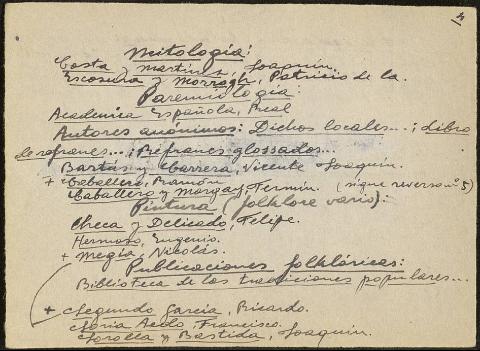 4
Mitología:
Costa y Martínez, Joaquín.
Escosura y Morrogh, Patricio de la.
Paremiología:
Academia Española, Real
Autores anónimos: Dichos locales...; Libro
de refranes...; Refranes glossados...
Bartás y Carrera, Vicente Joaquín.
+ Caballero, Ramón
Caballero y Morgay, Fermín. (sigue reverso nº 5)
Pintura (folklore vario):
Checa y Delicado, Felipe.
Hermoso, Eugenio.
+ Megía, Nicolás.
Publicaciones folklóricas:
Biblioteca de las tradiciones populares...
+ Segundo García, Ricardo.
Soria Aedo, Francisco.
Sorolla y Bastida, Joaquín.